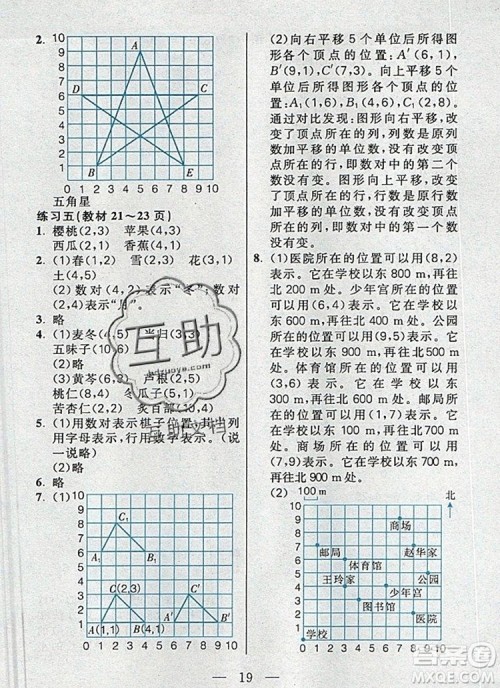 2.
10
9
8
7
6
5
4
3
2
1
0 1 2 3 4 5 6 7 8 9 10
A
B
C
D
E
五角星
练习五(教材 21～23 页)
1. 樱桃(2,3) 苹果(4,3)
西瓜(2,1) 香蕉(4,1)
2. (1)春(1,2) 雪(2,3) 花(3,1)
土(4,5)
(2) 数对(4,2)表示“冬”,数对
(2,4)表示“
3. 略
4. (1)麦冬(4,5) 当归(3,3)
五味子(10,6)
(2)略
(3)黄芩(3,2) 芦根(2,5)
桃仁(8,4) 瓜蒌(5,5)
苦杏仁(2,2) 炙百部(10,4)
5. (1)用数对表示棋子位置:其列
用字母表示,行用数字表示。(说
一说略)
(2)略
6. 略
7. (1)
10
9
8
7
6
5
4
3
2
1
0 1 2 3 4 5 6 7 8 9 10
C₁
A₁
B₁
C(2,3)
A(1,1)
B(4,1)
A′
B′
C′
(2)向右平移 5 个单位后所得图
形各个顶点的位置:A′(6,1),
B′(9,1),C′(7,3)。向上平移 5 个
单位后所得图形各个顶点的位
置:A₁(1,6),B₁(4,6),C₁(2,8)。
通过对比发现:图形向右平移,改
变了顶点所在的列,列数是原列
数加平移的格数,顶点所在的行
没有变,即数对中的第二个
数没有变。图形向上平移,改变了
顶点所在的行,行数是原行数加
平移的格数,顶点所在的列没有
变,即数对中的第一个数没有变。
8. (1)医院所在的位置可以用(8,2)
表示。它在学校以东 800 m,再往
北 200 m处。少年宫所在的位置
可以用(6,4)表示。它在学校以
东 600 m,再往北 400 m处。公园
所在的位置可以用(9,5)表示。
它在学校以东 900 m,再往北
500 m处。体育馆所在的位置可
以用(3,6)表示。它在学校以东
300 m,再往北 600 m处。邮局所
在的位置可以用(1,7)表示。它
在学校以东 100 m,再往北 700 m
处。商场所在的位置可以用
(7,9)表示。它在学校以东 700 m,
再往北 900 m处。
(2) 100 m
北
10
9
8
7
6
5
4
3
2
1
0 1 2 3 4 5 6 7 8 9 10
商场
邮局
赵华家
体育馆
王玲家
公园
少年宫
图书馆
医院
学校
— 19 —
互助
互助文档
答案圈
MXQE.COM